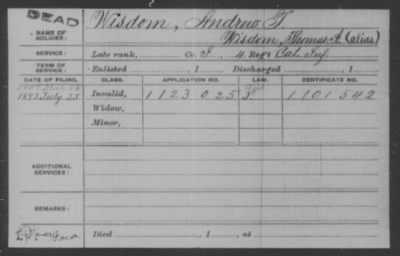 DEAD
Wisdom, Andrew T.
NAME OF SOLDIER:
Wisdom, Thomas A (alias)
SERVICE:
Late rank, Co. I, 4 Reg't Cal. Inf.
TERM OF SERVICE:
Enlisted , 1 Discharged , 1
DATE OF FILING. CLASS. APPLICATION NO. LAW. CERTIFICATE NO.
1892 July 25 Invalid, 1123025 1101542
Widow,
Minor,
ADDITIONAL SERVICES:
REMARKS:
Died , 1 , at